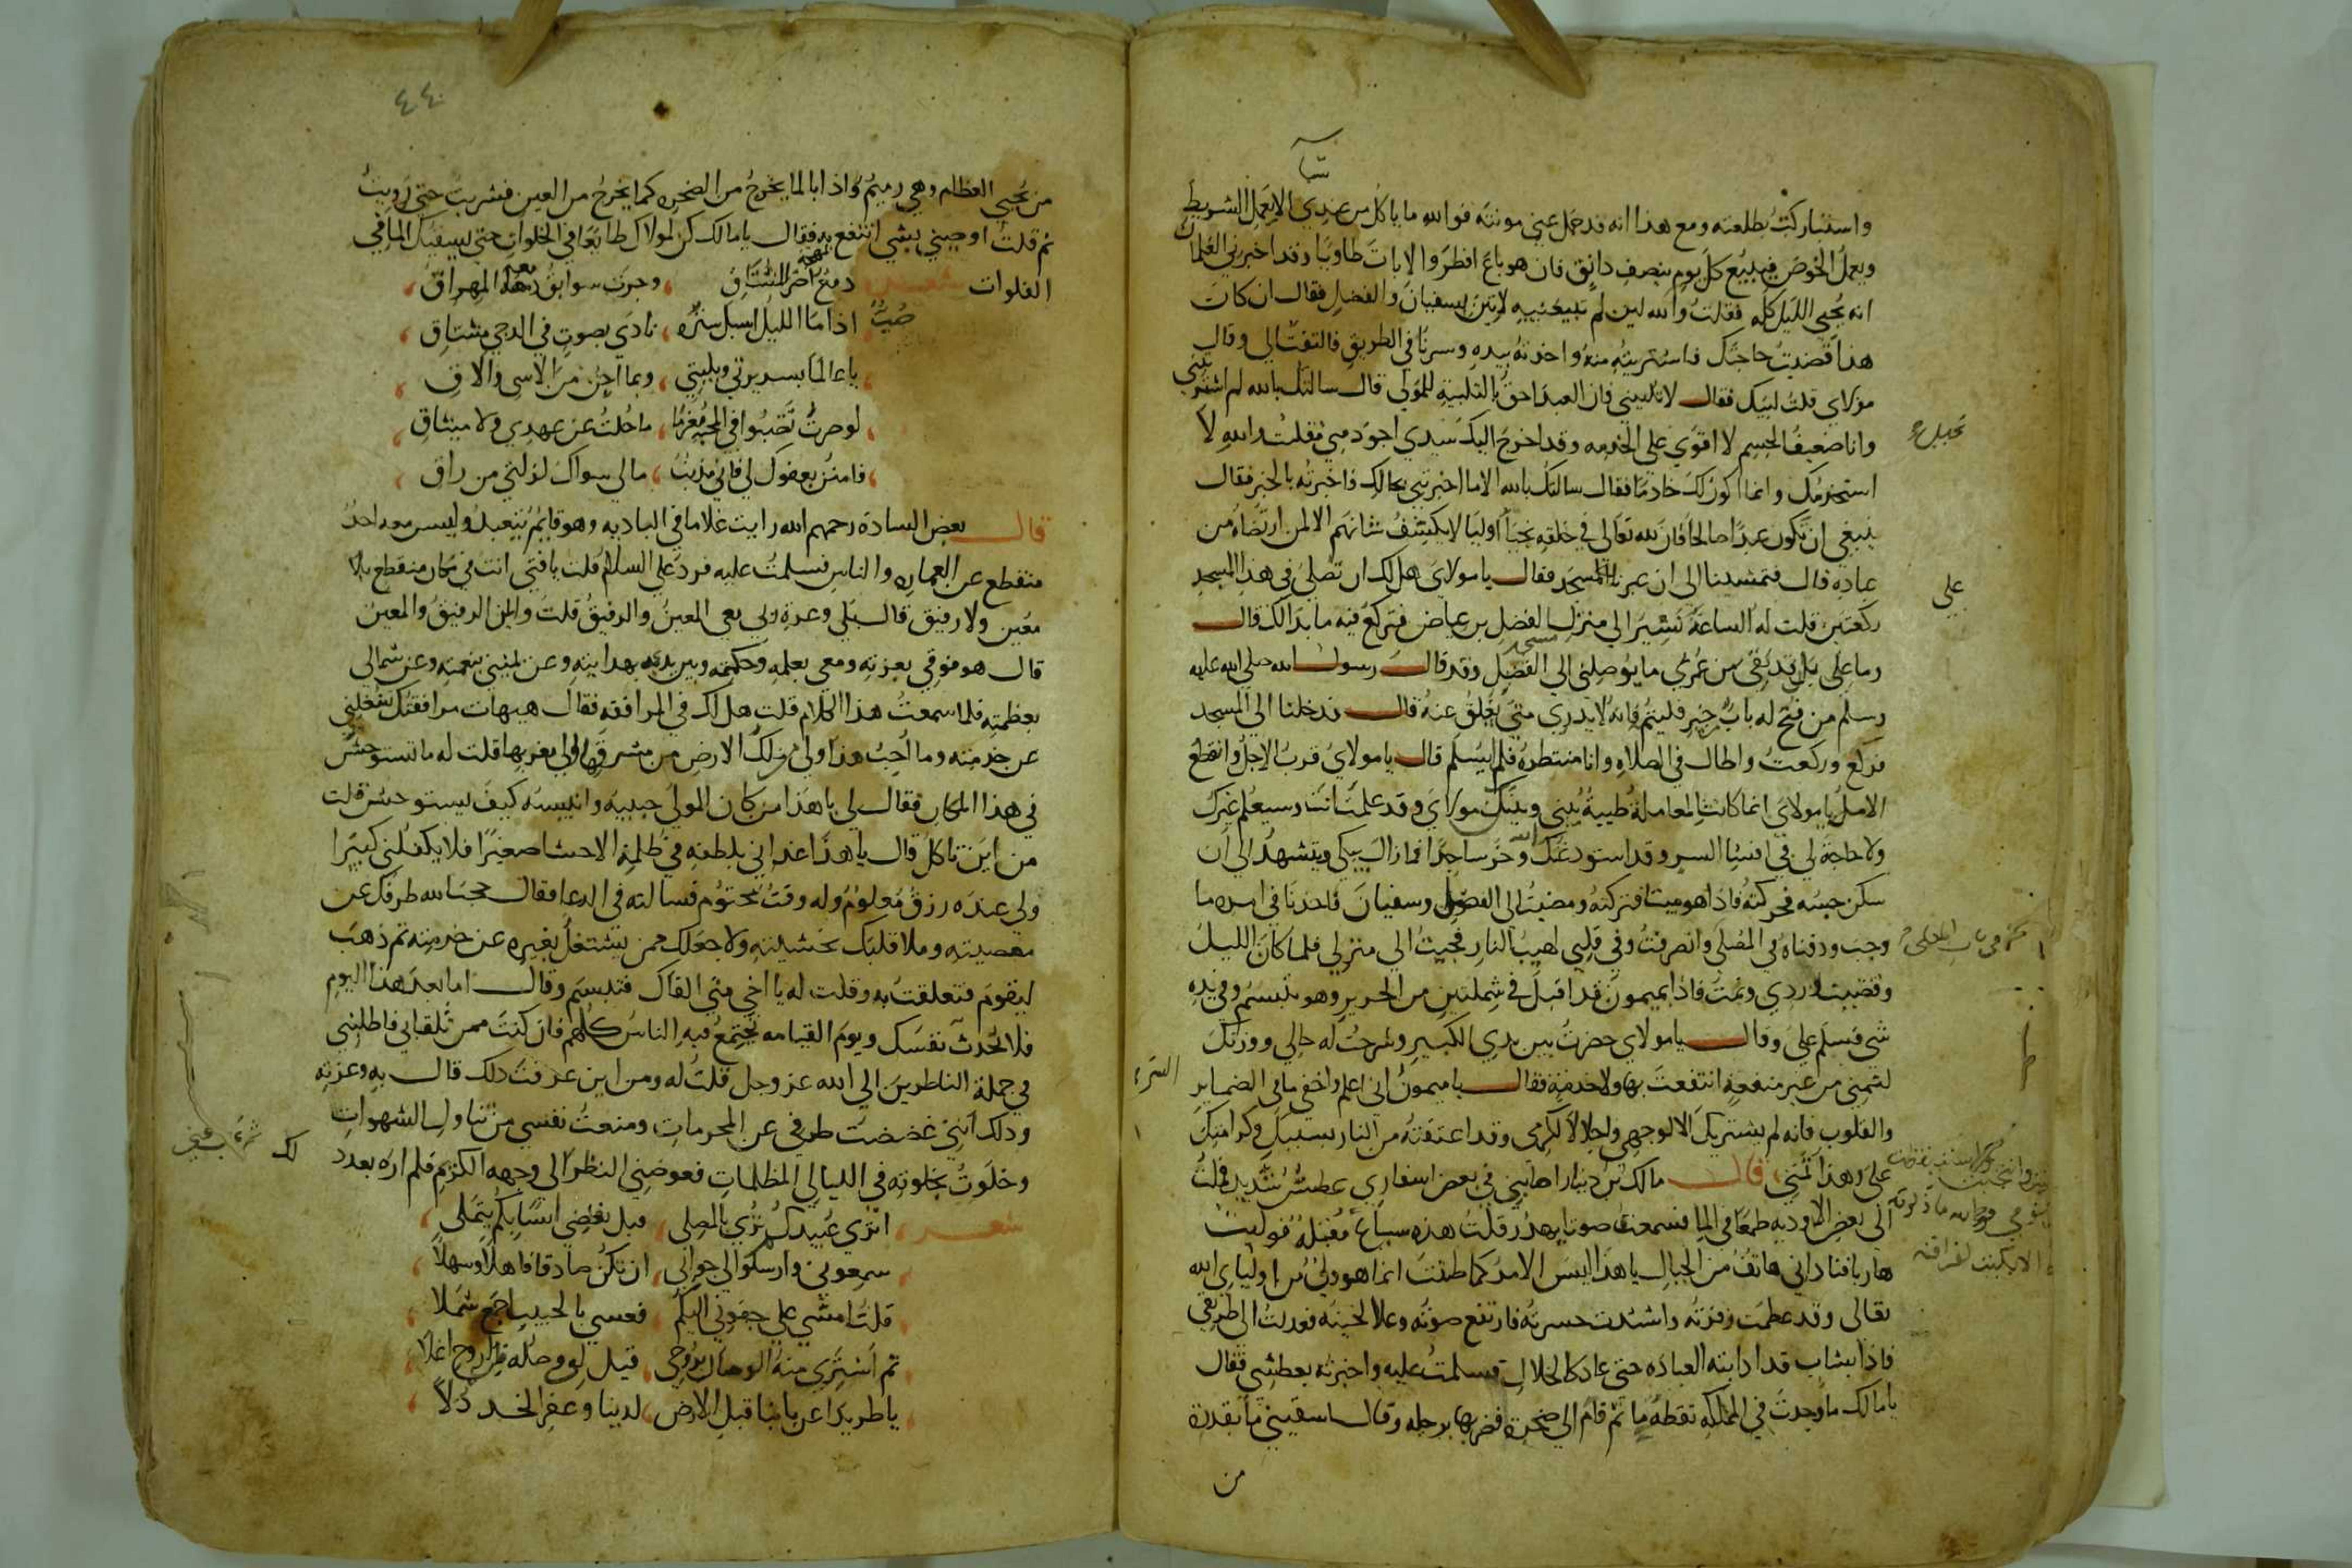 واستباركت بطلعته ومع هذا انه قد حمل عني مونته فوالله ما ياكل من عندي الا يعمل الشريط
ويعمل الخوص فيبيع كل يوم بنصف دانق فان هو باع افطر والا بات طاويا وقد اخبرني الغلمان
انه يحيي الليل كله فقلت والله لين لم تبيعنيه لاتين بسفيان والفضل فقال ان كانت
هذا قضيت حاجتك فاشتريته منه واخذته بيده وسرنا في الطريق فالتفت الي وقال
مولاي قلت لبيك فقال لا تلبيني فان العبد احق بالتلبية للمولى قال سالتك بالله لم اشتريتني
وانا ضعيف الجسم لا اقوي على الخدمه وقد اخرج اليك سيدي اجود مني فقلت والله لا
استخدمك وانما اكون لك خادما فقال سالتك بالله الا ما اخبرتني بحالك فاخبرته بالخبر فقال
ينبغي ان تكون عبدا صالحا فان لله تعالى في خلقه نجبا اوليا لا يكشف شانهم الا لمن ارتضاه من
عباده قال فتمشينا الى ان عبرنا المسجد فقال يا مولاي هل لك ان تصلي في هذا المسجد
على
ركعتين قلت له الساعة نسير الي منزل الفضل بن عياض فتركع فيه ما بدا لك قال
وما علي بل قد بقي من عمري ما يوصلني الي الفضل وقد قال رسول الله صلى الله عليه
وسلم من فتح له باب خير فليتم فانه لا يدري متى يغلق عنه قال فدخلنا الي المسجد
فركع وركعت واطال في الصلاه وانا منتظره فلم يسلم قال يا مولاي قرب الاجل وانقطع
الامل يا مولاي انما كانت المعاملة طيبة بيني وبينك مولاي وقد علمت انت وسيعلم غيرك
ولا حاجة لي في افشا السر وقد استودعتك الله وخر ساجدا فما زال يبكي ويتشهد الى ان
سكن حسه فحركته فاذا هو ميت فتركته ومضيت الي الفضل وسفيان فاخذنا في امره ما
وجب ودفناه في المصلى وانصرفت وفي قلبي لهيب النار فجيت الي منزلي فلما كان الليل
وقضيت وردي ونمت فاذا بميمون قد اقبل في شملتين من الحرير وهو يتبسم وفي يده
شي فسلم علي وقال يا مولاي حضرت بين يدي الكبير وشرحت له حالي ووزنك
لثمني من غير منفعة انتفعت بها ولا خدمة فقال يا ميمون اني اعلم واخفي ما في الضماير
والقلوب فانه لم يشتريك الا لوجهي واجلالا لكرمي وقد اعتقته من النار بسببك وكرامتك
علي وهذا ثمني قال مالك بن دينار اصابني في بعض اسفاري عطش شديد فملت
الى بعض الاوديه طمعا في الما فسمعت صوتا يهدر فقلت هذه سباع مقبلة فوليت
هاربا فناداني هاتف من الجبال يا هذا ليس الامر كما ظننت انما هو ولي من اوليا الله
تعالى وقد عظمت زفرته واشتدت حسرته فارتفع صوته وعلا نحيبه فعدلت الى طريقي
فاذا بشاب قد اذابته العباده حتى عاد كالخلال فسلمت عليه واخبرته بعطشي فقال
يا مالك ما وجدت في المملكه نقطة ما ثم قام الى صخرة فضربها برجله وقال اسقيني ما بقدرة
من
٤٤
من يحيي العظام وهي رميم واذا بالما يخرج من الصخره كما يخرج من العين فشربت حتى رويت
ثم قلت اوصيني بشي انتفع به فقال يا مالك كن لمولاك طايعا في الخلوات حتى يسقيك الما في
الفلوات شعر دمع المشتاق ، وجرت سوابق دمعه المهراق ،
صب اذا ما الليل اسبل ستره ، نادي بصوت في الدجي مشتاق ،
، يا عالما بسريرتي وبليتي ، وبما اجن من الاسى والاق ،
، لو صرت نحبوا في المحبة مغرما ، ما حلت عن عهدي ولا ميثاق ،
، فامنن بعفوك لي فاني مذنب ، ما لي سواك لزلتي من راق ،
قال بعض السادة رحمهم الله رايت غلاما في الباديه وهو قايم يتعبد وليس معه احد
منقطع عن العماره والناس فسلمت عليه فرد علي السلام قلت يا فتى انت في مكان منقطع بلا
معين ولا رفيق قال بلى وعزة ربي معي المعين والرفيق قلت واين الرفيق والمعين
قال هو فوقي بعزته ومعي بعلمه وحكمته وبين يدي بهدايته وعن يميني بنعمته وعن شمالي
بعظمته فلما سمعت هذا الكلام قلت هل لك في المرافقة فقال هيهات مرافقتك تشغلني
عن خدمته وما احب هذا ولي ملك الارض من مشرقها الي مغربها قلت له ما تستوحش
في هذا المكان فقال لي يا هذا من كان المولى حبيبه وانيسه كيف يستوحش قلت
من اين تاكل قال يا هذا غذاني بلطفه في ظلمة الاحشا صغيرا فلا يكفلني كبيرا
ولي عنده رزق معلوم وله وقت محتوم فسالته في الدعا فقال حجب الله طرفك عن
معصيته وملا قلبك بخشيته ولا جعلك ممن يشتغل بغيره عن خدمته ثم ذهب
ليقوم فتعلقت به وقلت له يا اخي متى القاك فتبسم وقال اما بعد هذا اليوم
فلا تحدث نفسك ويوم القيامه تجتمع فيه الناس كلهم فان كنت ممن تلقاني فاطلبني
في جملة الناظرين الي الله عز وجل قلت له ومن اين عرفت ذلك قال به وعزته
وذلك انني غضضت طرفي عن المحرمات ومنعت نفسي من تناول الشهوات
وخلوت بخلوته في الليالي المظلمات فعوضني النظر الى وجهه الكريم فلم اره بعدد
شعر ، اتري عبيدكم تري بالمصلى ، قبل يقضي انسا بكم يتملى ،
، سمعوني وارسلوا لي جوابي ، ان تكن صادقا فاهلا وسهلا ،
، قلت امشي على جفوني اليكم ، فعسي بالحبيب اجمع شملا ،
، ثم اشتري منه الوصال بروحي ، قيل لي وصله من الروح اغلا ،
، يا طريدا عن بابنا قبل الارض ، لدينا وعفر الخد ذلا ،